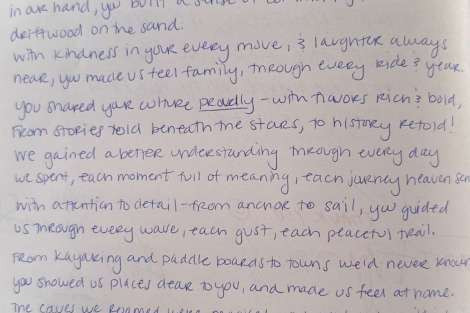 in one hand, you built a sense of
driftwood on the sand.
With kindness in your every move, & laughter always
near, you made us feel family, through every ride & year.
You shared your culture proudly - with flavors rich & bold,
From stories told beneath the stars, to history retold!
We gained a better understanding through every day
we spent, each moment full of meaning, each journey heaven sen
With attention to detail - from anchor to sail, you guided
us through every wave, each gust, each peaceful trail.
From Kayaking and paddle boards to towns we'd never known
you showed us places dear to you, and made us feel at home.
The caves we roamed were